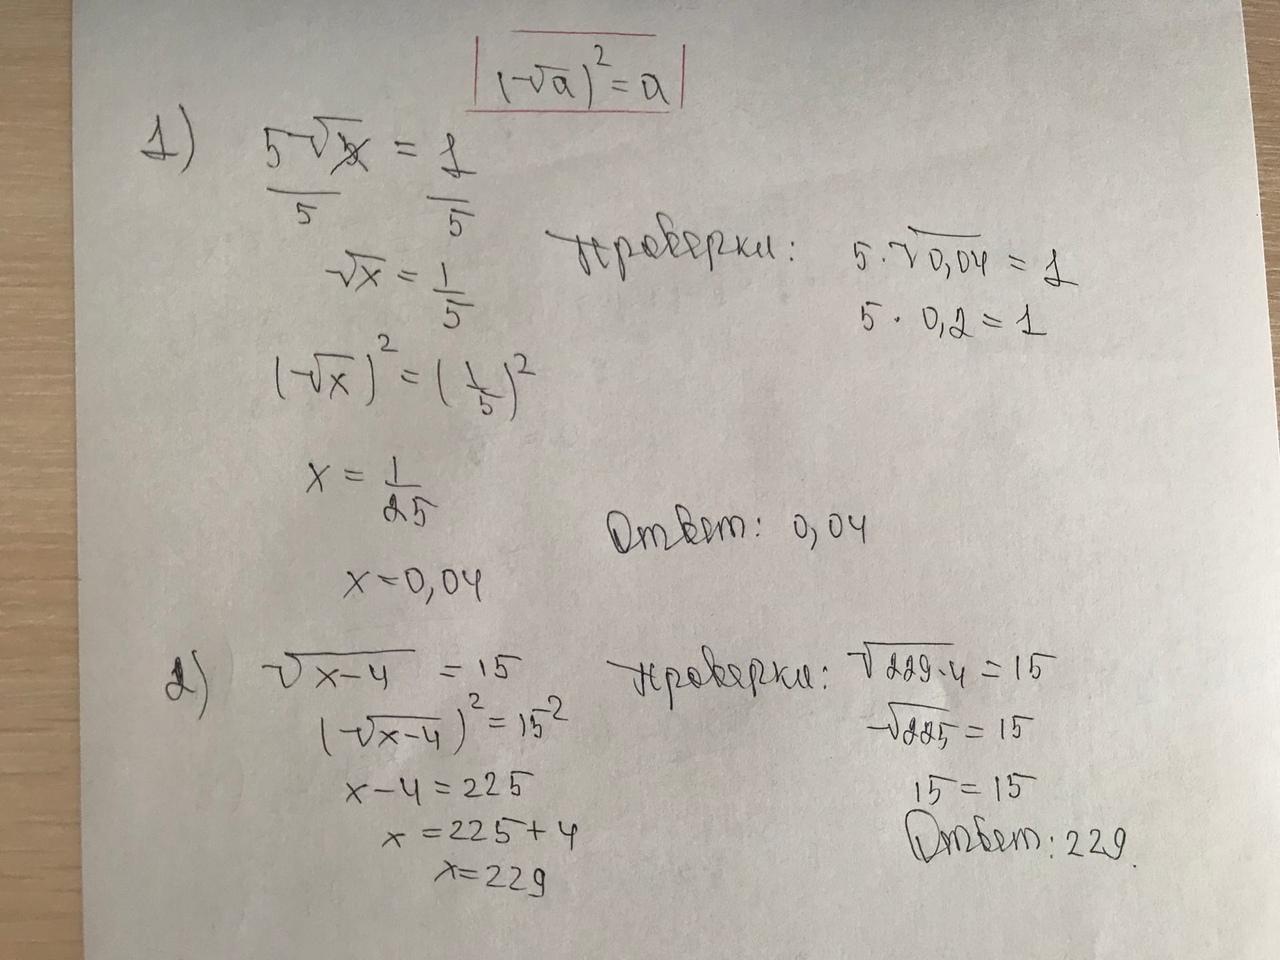 (√a)² = a
1) 5√x / 5 = 1 / 5
√x = 1/5
(√x)² = (1/5)²
x = 1/25
x = 0,04
Проверка: 5·√0,04 = 1
5 · 0,2 = 1
Ответ: 0,04
2) √x-4 = 15
(√x-4)² = 15²
x - 4 = 225
x = 225 + 4
x = 229
Проверка: √229-4 = 15
√225 = 15
15 = 15
Ответ: 229.